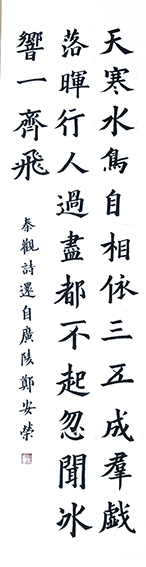 天寒水鳥自相依三五成羣戲
落暉行人過盡都不起忽聞冰
響一齊飛
秦觀詩還自廣陵鄭安榮